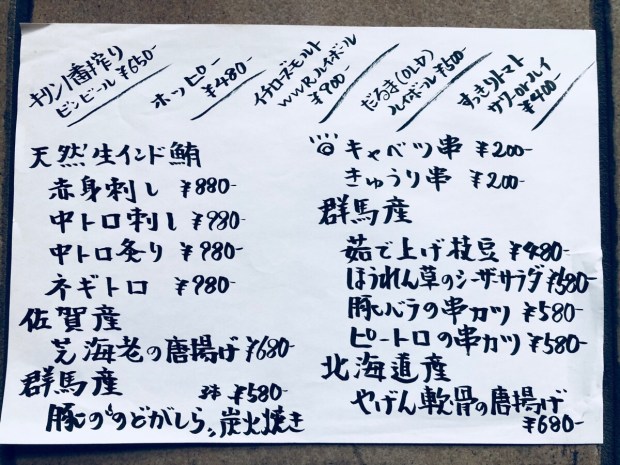 キリン一番搾り
ビンビール ¥650-
ホッピー
¥480-
イチローズモルト
WWRハイボール
¥900-
だるま(OLD)
ハイボール ¥500-
すっきりトマト
サワーorハイ
¥400-
天然生インド鮪
赤身刺し ¥880-
中トロ刺し ¥980-
中トロ炙り ¥980-
ネギトロ ¥980-
佐賀産
芝海老の唐揚げ ¥680-
群馬産
3本 ¥580-
豚の"のどがしら"炭火焼き
◎ キャベツ串 ¥200-
きゅうり串 ¥200-
群馬産
茹で上げ枝豆 ¥480-
ほうれん草のシーザサラダ ¥580-
豚バラの串カツ ¥580-
ピートロの串カツ ¥580-
北海道産
やげん軟骨の唐揚げ
¥680-